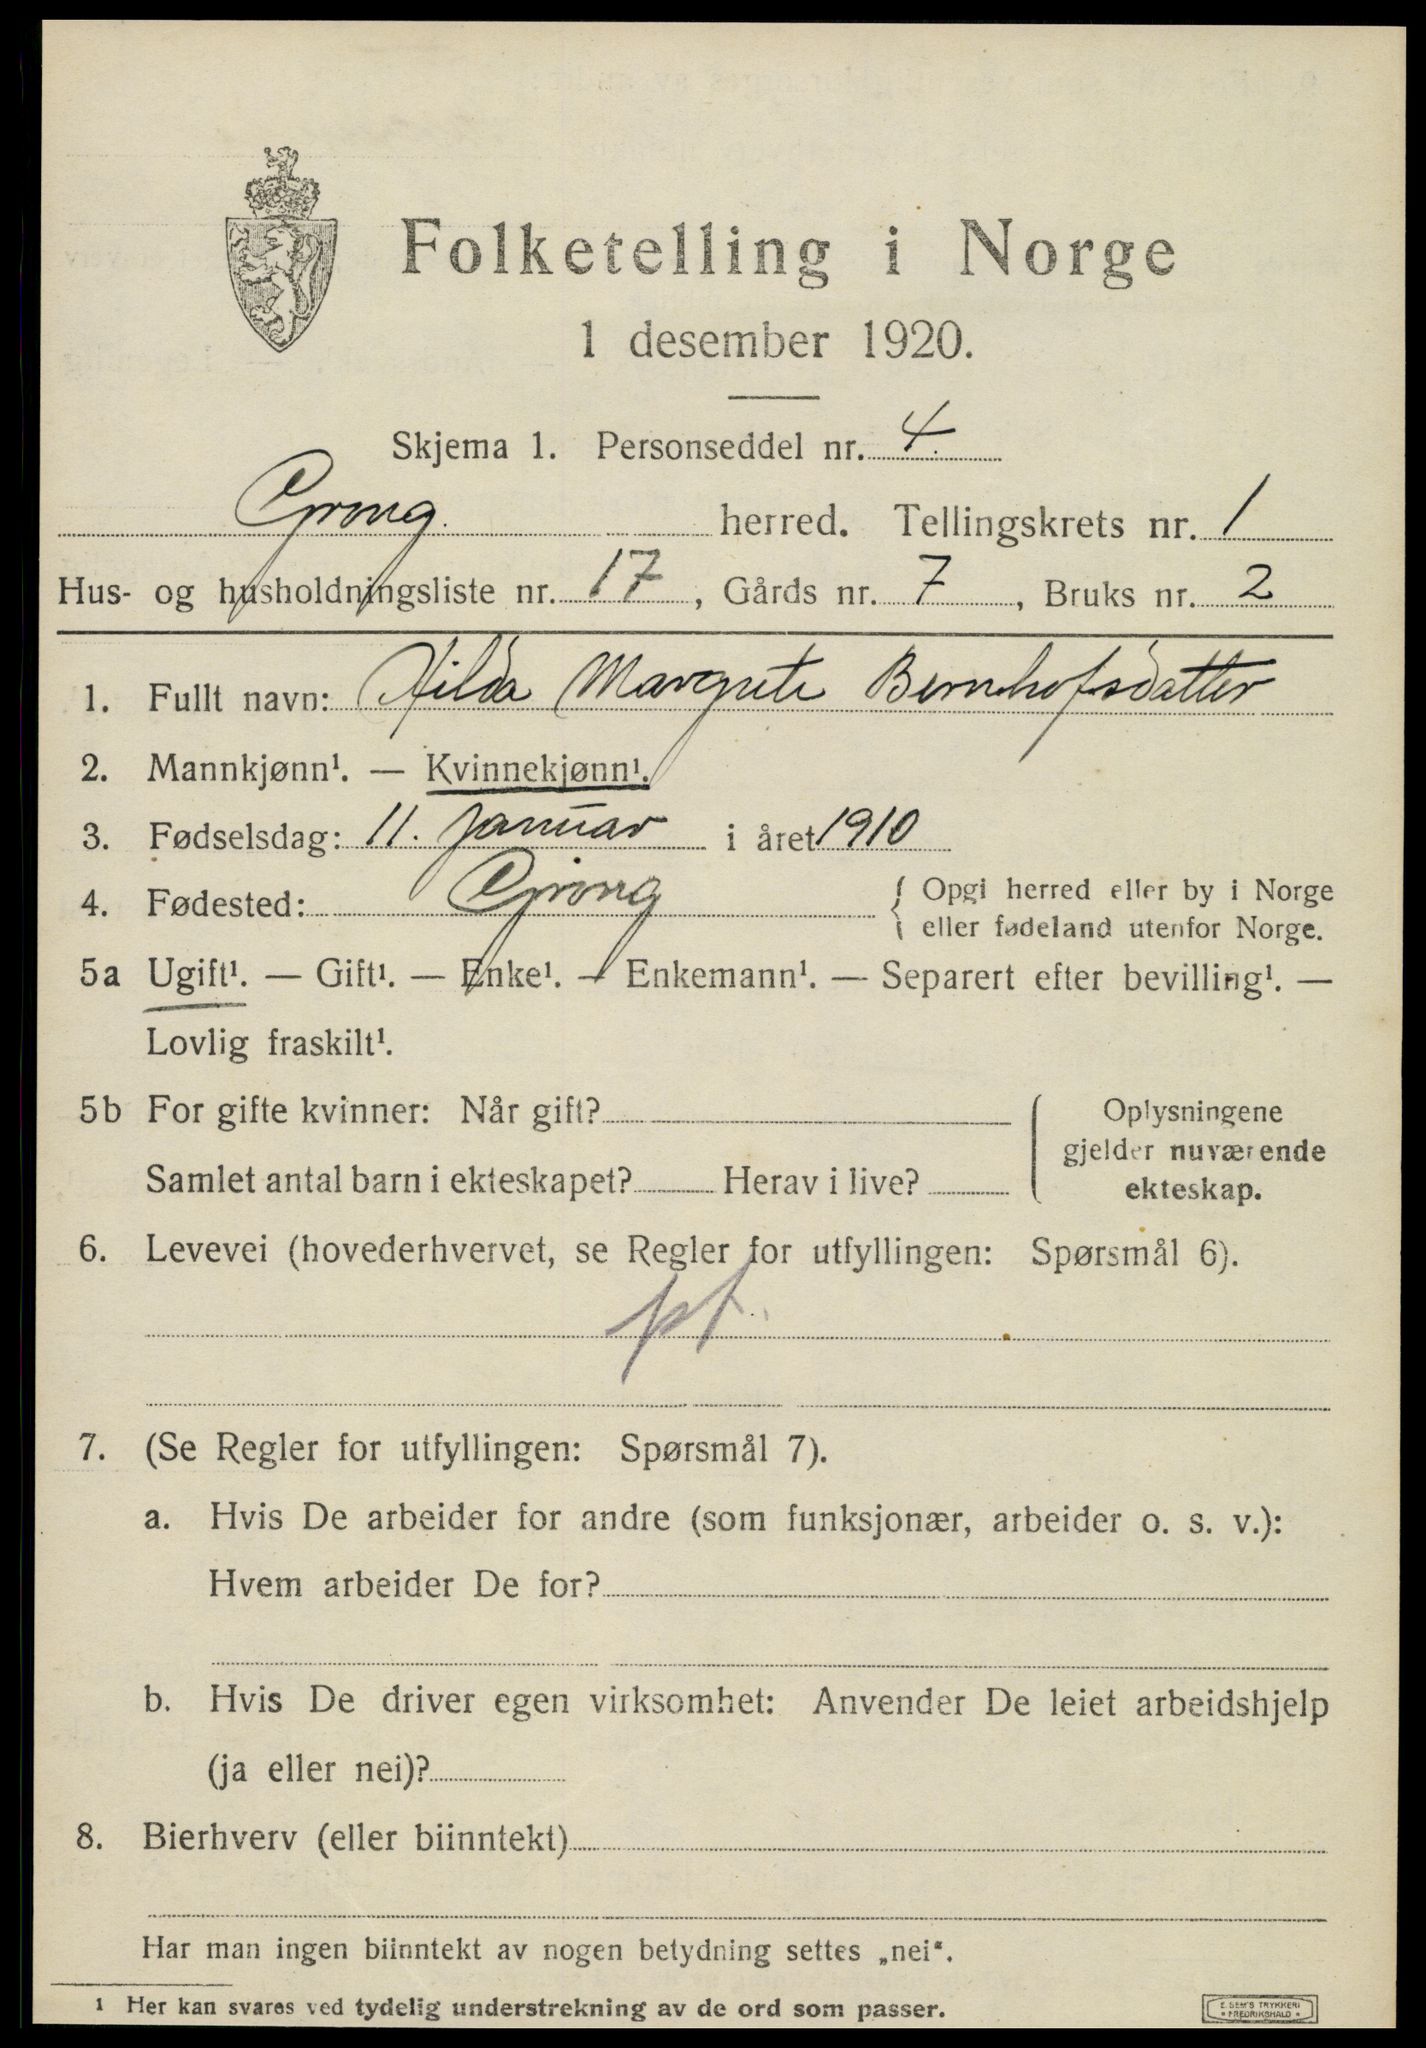 Folketelling i Norge
1 desember 1920.
Skjema 1. Personseddel nr. 4.
Grong herred. Tellingskrets nr. 1
Hus- og husholdningsliste nr. 17, Gårds nr. 7, Bruks nr. 2
1. Fullt navn: Hilda Margrete Bernhofsdatter
2. Mannkjønn¹. — Kvinnekjønn¹.
3. Fødselsdag: 11. januar i året 1910
4. Fødested: Grong { Opgi herred eller by i Norge
eller fødeland utenfor Norge.
5a Ugift¹. — Gift¹. — Enke¹. — Enkemann¹. — Separert efter bevilling¹. —
Lovlig fraskilt¹.
5b For gifte kvinner: Når gift?
Samlet antal barn i ekteskapet? Herav i live?
Oplysningene
gjelder nuværende
ekteskap.
6. Levevei (hovederhvervet, se Regler for utfyllingen: Spørsmål 6).
pt.
7. (Se Regler for utfyllingen: Spørsmål 7).
a. Hvis De arbeider for andre (som funksjonær, arbeider o. s. v.):
Hvem arbeider De for?
b. Hvis De driver egen virksomhet: Anvender De leiet arbeidshjelp
(ja eller nei)?
8. Bierhverv (eller biinntekt)
Har man ingen biinntekt av nogen betydning settes „nei“.
1 Her kan svares ved tydelig understrekning av de ord som passer.
E. SEM'S TRYKKERI
• FREDRIKSHALD •